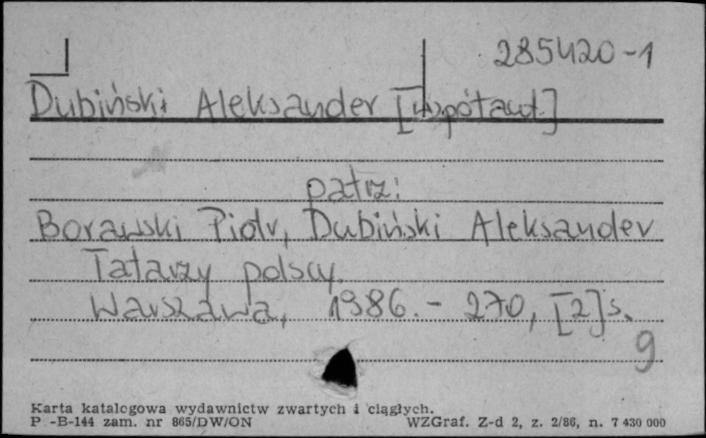 285420-1
Dubiński Aleksander [współaut.]
patrz:
Borawski Piotr, Dubiński Aleksander
Tatarzy polscy.
Warszawa, 1986. - 270, [2] s.
9
Karta katalogowa wydawnictw zwartych i ciągłych.
P -B-144 zam. nr 865/DW/ON WZGraf. Z-d 2, z. 2/86, n. 7 430 000